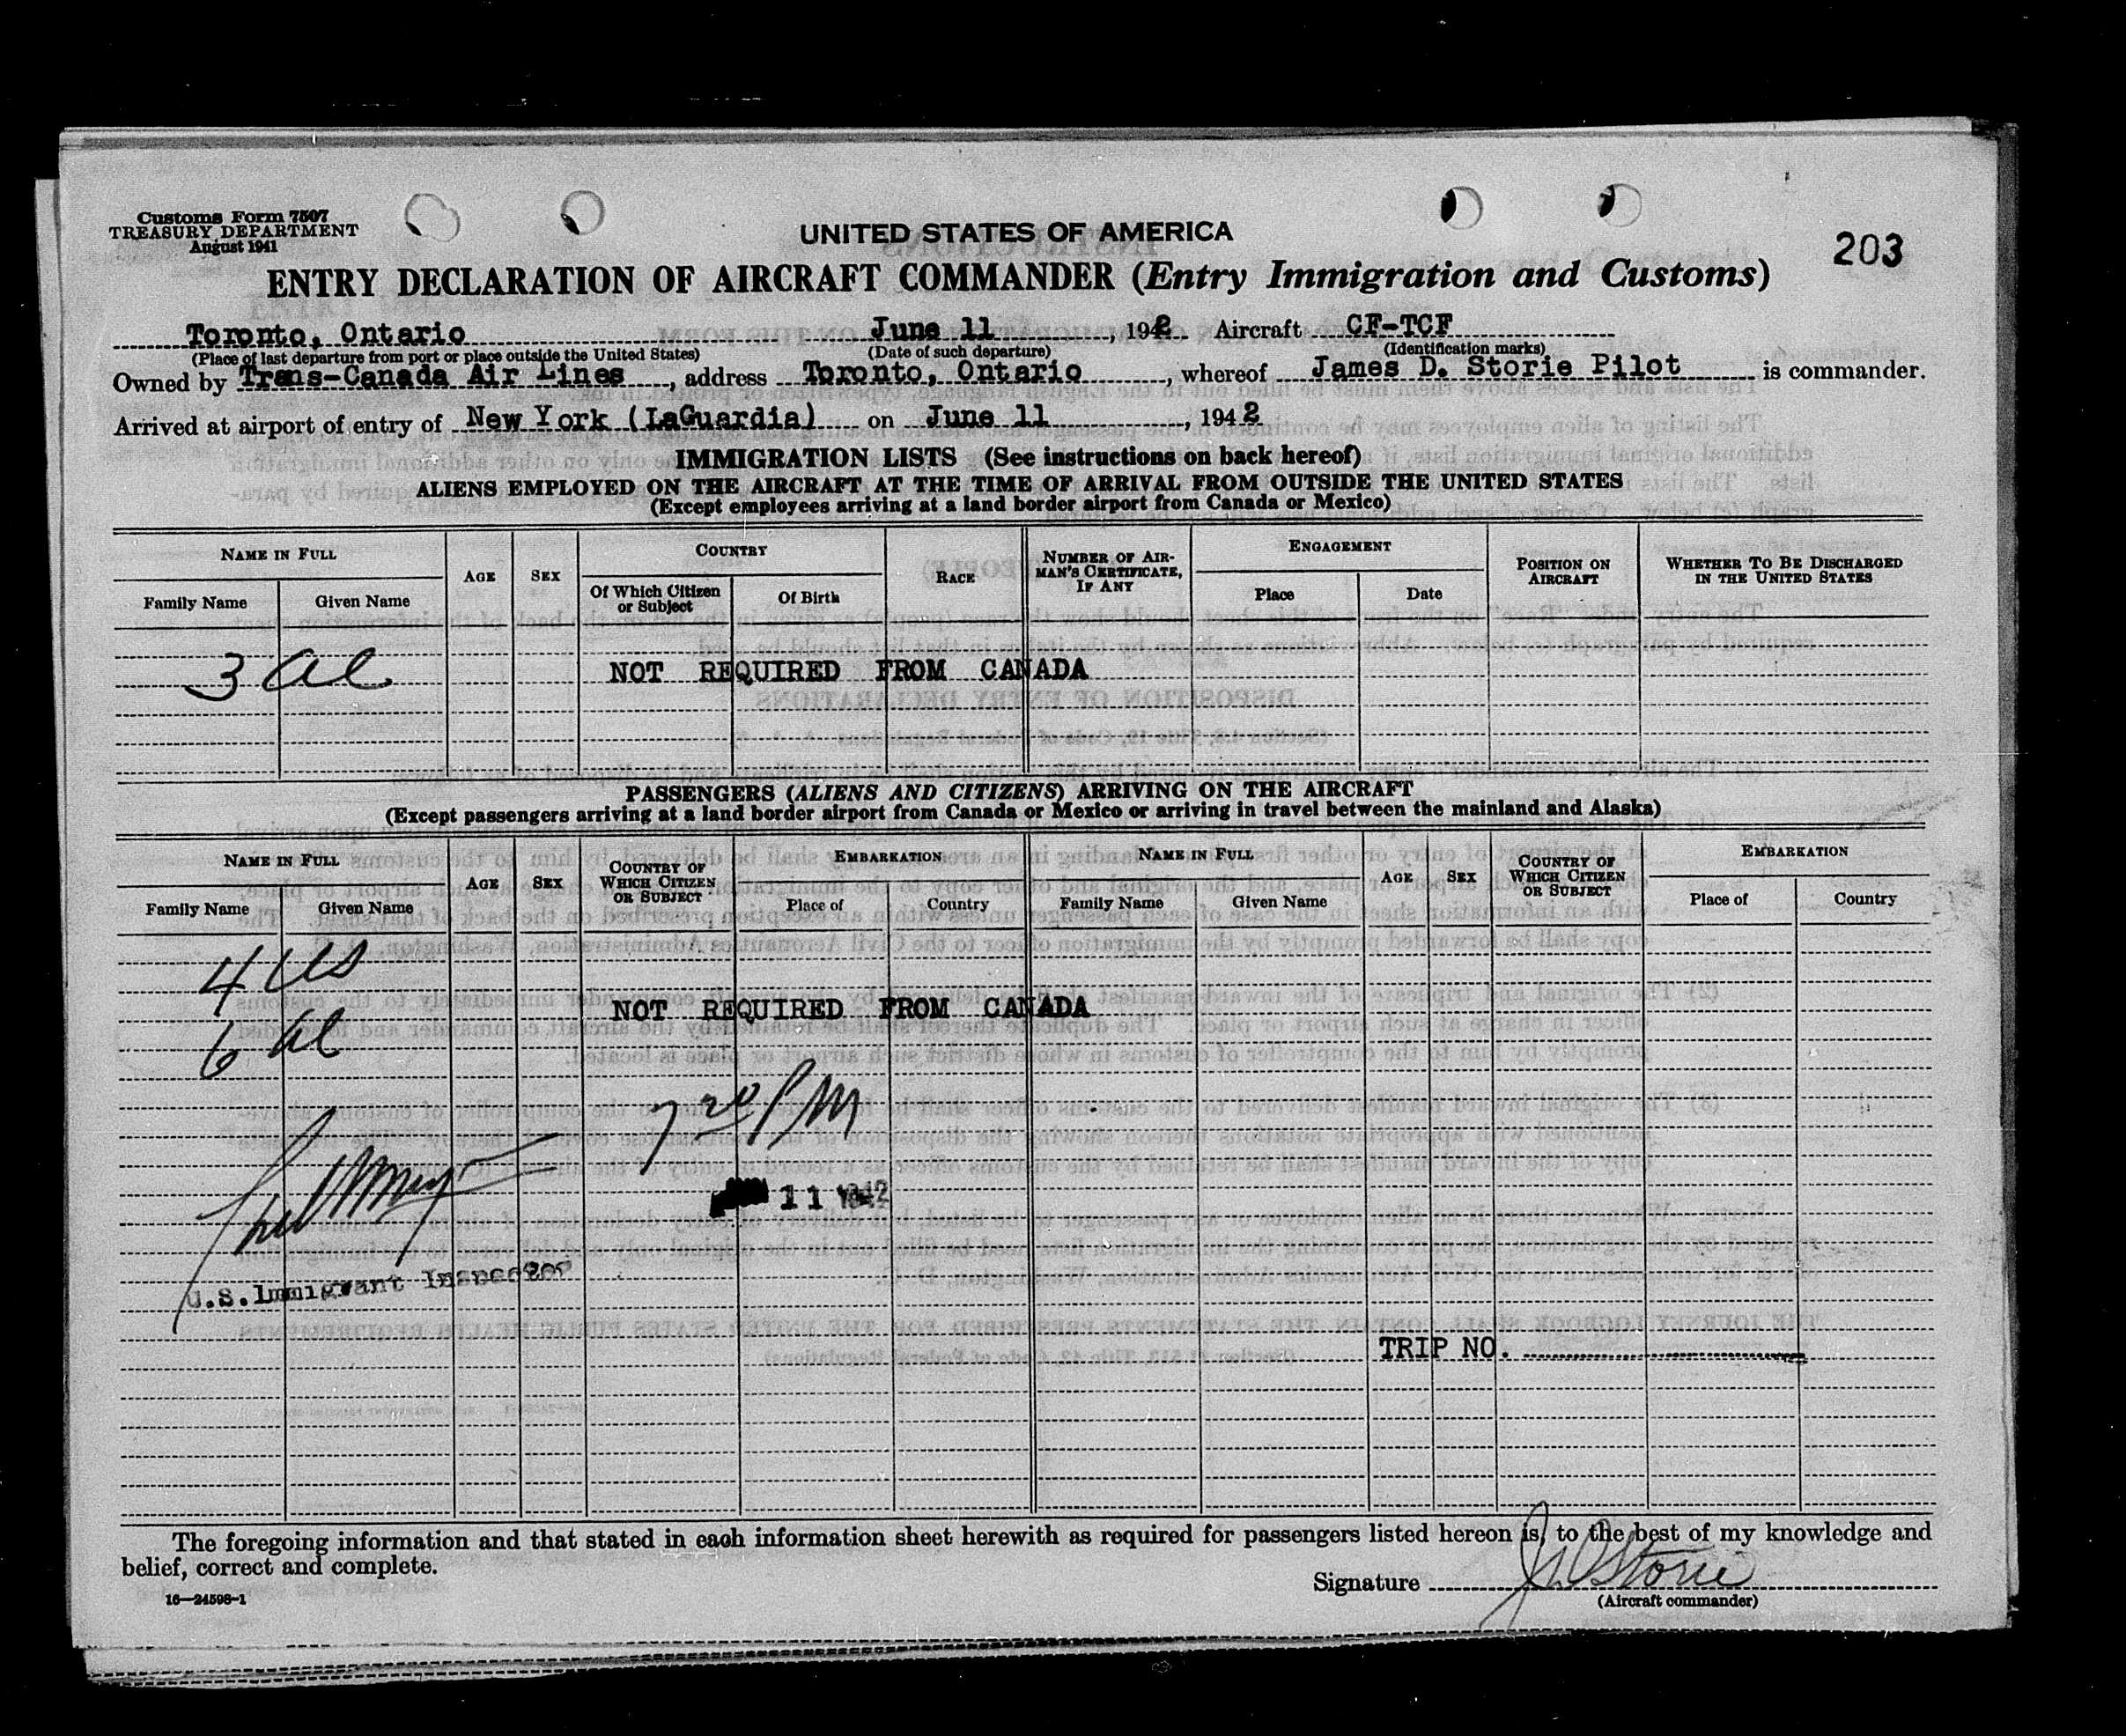 Customs Form 7507
TREASURY DEPARTMENT
August 1941
UNITED STATES OF AMERICA
203
ENTRY DECLARATION OF AIRCRAFT COMMANDER (Entry Immigration and Customs)
Toronto, Ontario June 11, 1942 Aircraft CF-TCF
(Place of last departure from port or place outside the United States) (Date of such departure) (Identification marks)
Owned by Trans-Canada Air Lines, address Toronto, Ontario, whereof James D. Storie Pilot is commander.
Arrived at airport of entry of New York (LaGuardia) on June 11, 1942
IMMIGRATION LISTS (See instructions on back hereof)
ALIENS EMPLOYED ON THE AIRCRAFT AT THE TIME OF ARRIVAL FROM OUTSIDE THE UNITED STATES
(Except employees arriving at a land border airport from Canada or Mexico)
NAME IN FULL AGE SEX COUNTRY RACE NUMBER OF AIRMAN'S CERTIFICATE, IF ANY ENGAGEMENT POSITION ON AIRCRAFT WHETHER TO BE DISCHARGED IN THE UNITED STATES
Family Name Given Name Of Which Citizen or Subject Of Birth Place Date
3 al NOT REQUIRED FROM CANADA
PASSENGERS (ALIENS AND CITIZENS) ARRIVING ON THE AIRCRAFT
(Except passengers arriving at a land border airport from Canada or Mexico or arriving in travel between the mainland and Alaska)
NAME IN FULL AGE SEX COUNTRY OF WHICH CITIZEN OR SUBJECT EMBARKATION NAME IN FULL AGE SEX COUNTRY OF WHICH CITIZEN OR SUBJECT EMBARKATION
Family Name Given Name Place of Country Family Name Given Name Place of Country
4 US
NOT REQUIRED FROM CANADA
6 al
7 30 PM
11 1942
U.S.Immigrant Inspector
TRIP NO.
The foregoing information and that stated in each information sheet herewith as required for passengers listed hereon is, to the best of my knowledge and
belief, correct and complete.
Signature J D Storie
16—24598-1 (Aircraft commander)